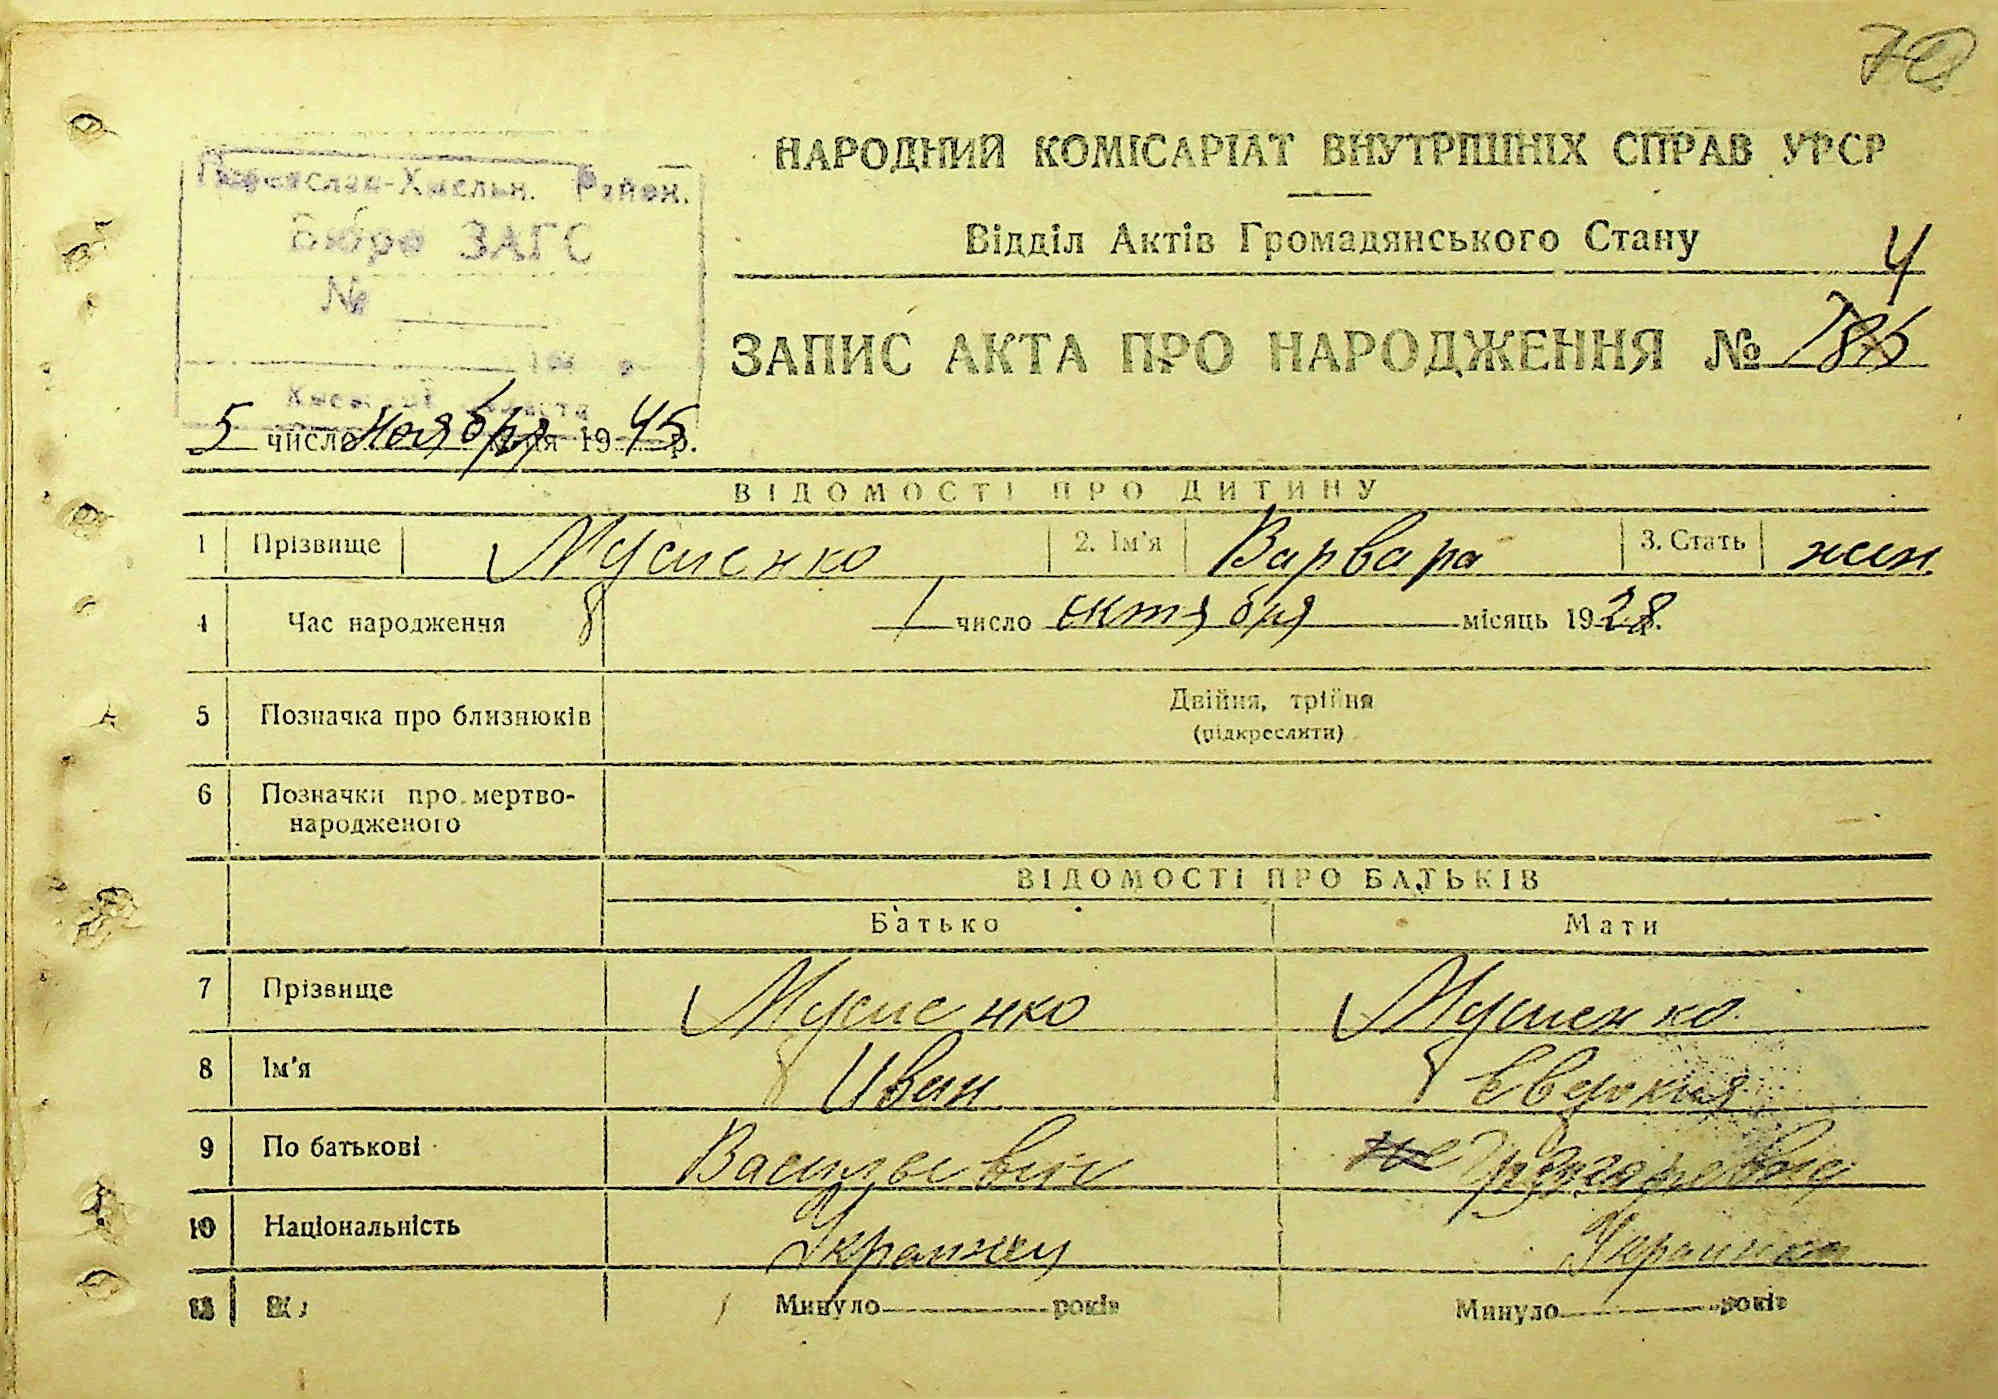 70
Переяслав-Хмельн. Район.
Бюро ЗАГС
№
НАРОДНИЙ КОМІСАРІАТ ВНУТРІШНІХ СПРАВ УРСР
Відділ Актів Громадянського Стану
4
ЗАПИС АКТА ПРО НАРОДЖЕННЯ № 786
5 число ноября 1945 р.
ВІДОМОСТІ ПРО ДИТИНУ
1 Прізвище Мусиенко 2. Ім'я Варвара 3. Стать жен
4 Час народження 1 число октября місяць 1928 р.
5 Позначка про близнюків Двійня, трійня
(підкреслити)
6 Позначки про мертво-
народженого
ВІДОМОСТІ ПРО БАТЬКІВ
Батько Мати
7 Прізвище Мусиенко Мусиенко
8 Ім'я Иван Евдокия
9 По батькові Васильевич
10 Національність Украинец Украинка
Минуло років Минуло років